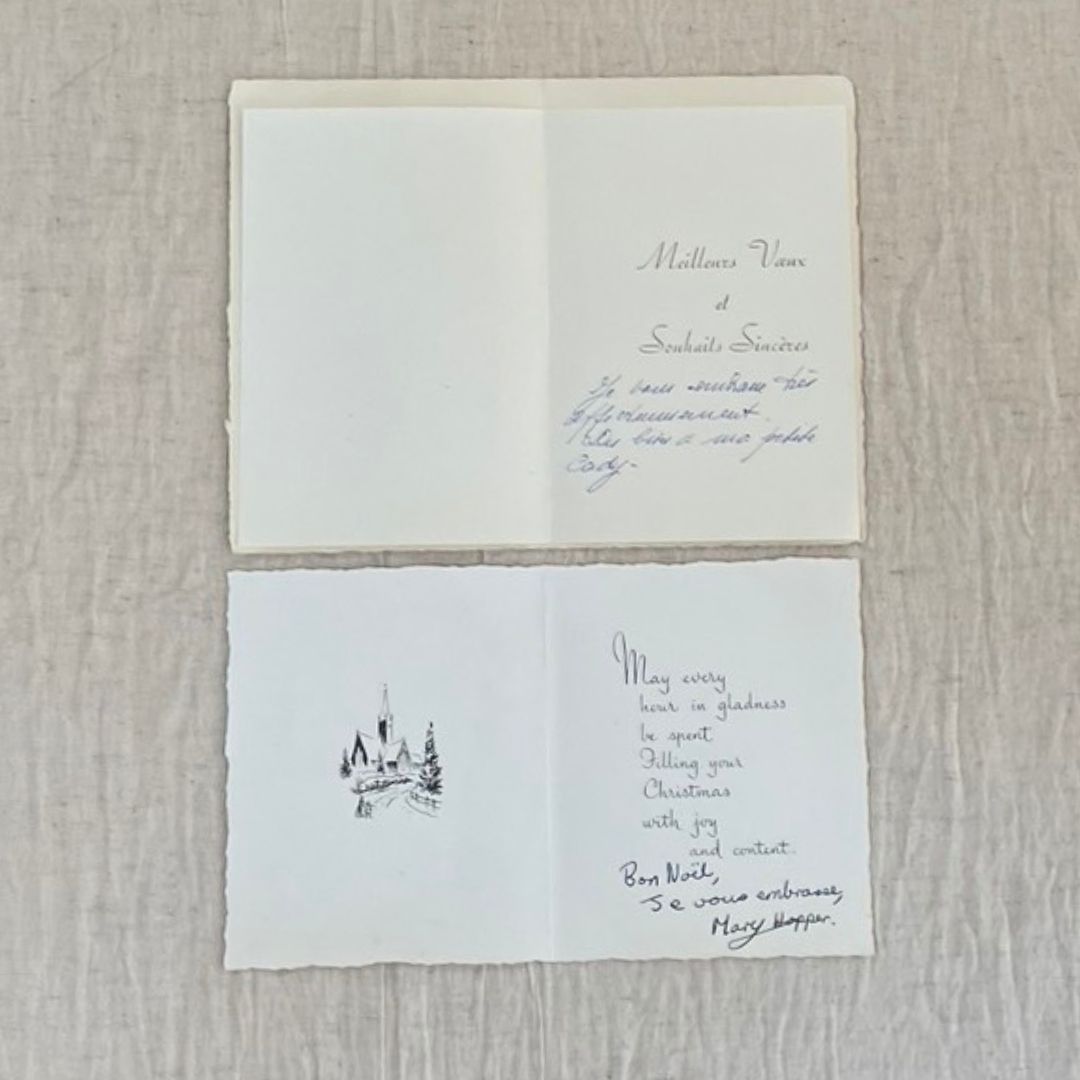 Meilleurs Vœux
et
Souhaits Sincères
Je vous embrasse très
affectueusement.
bises à ma petite
May every
hour in gladness
be spent
Filling your
Christmas
with joy
and content.
Bon Noël,
Je vous embrasse,
Mary Hopper.